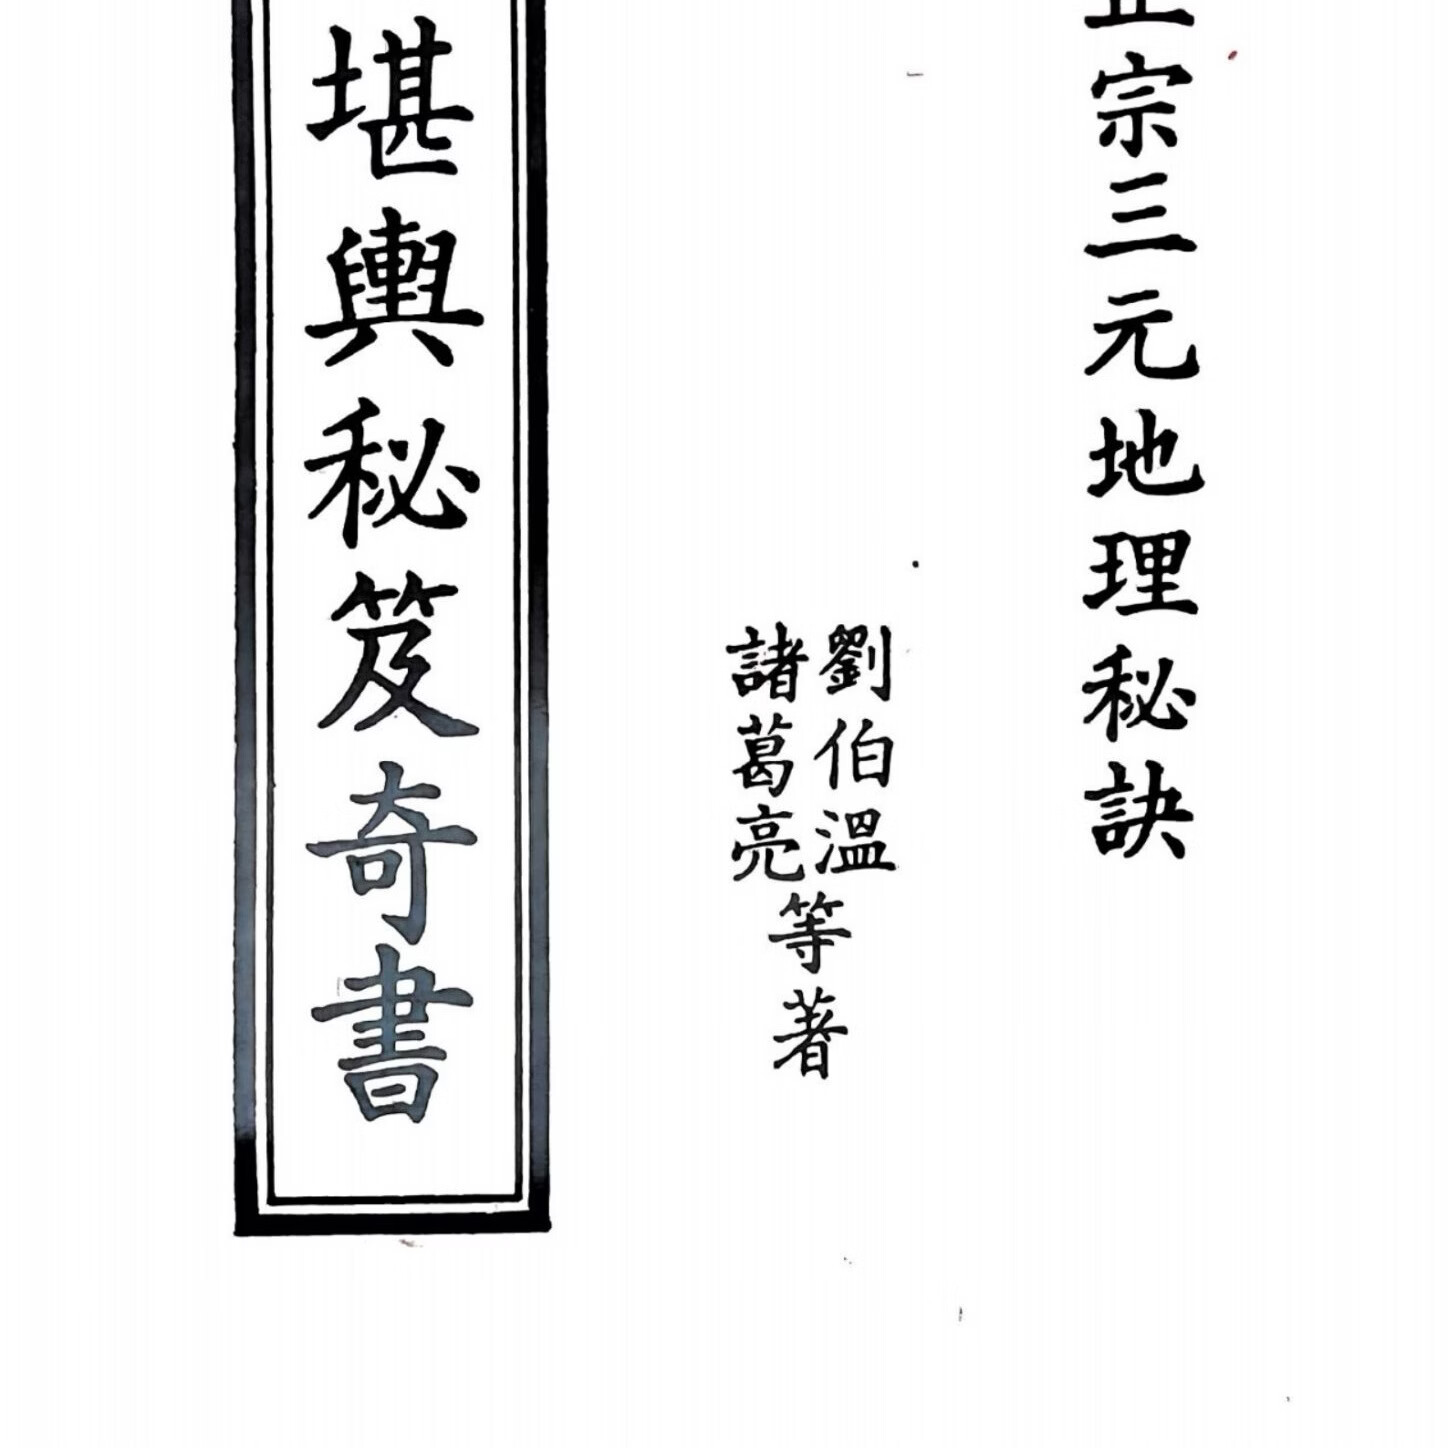 正宗三元地理秘訣
劉伯溫
諸葛亮
等著
堪輿秘笈奇書